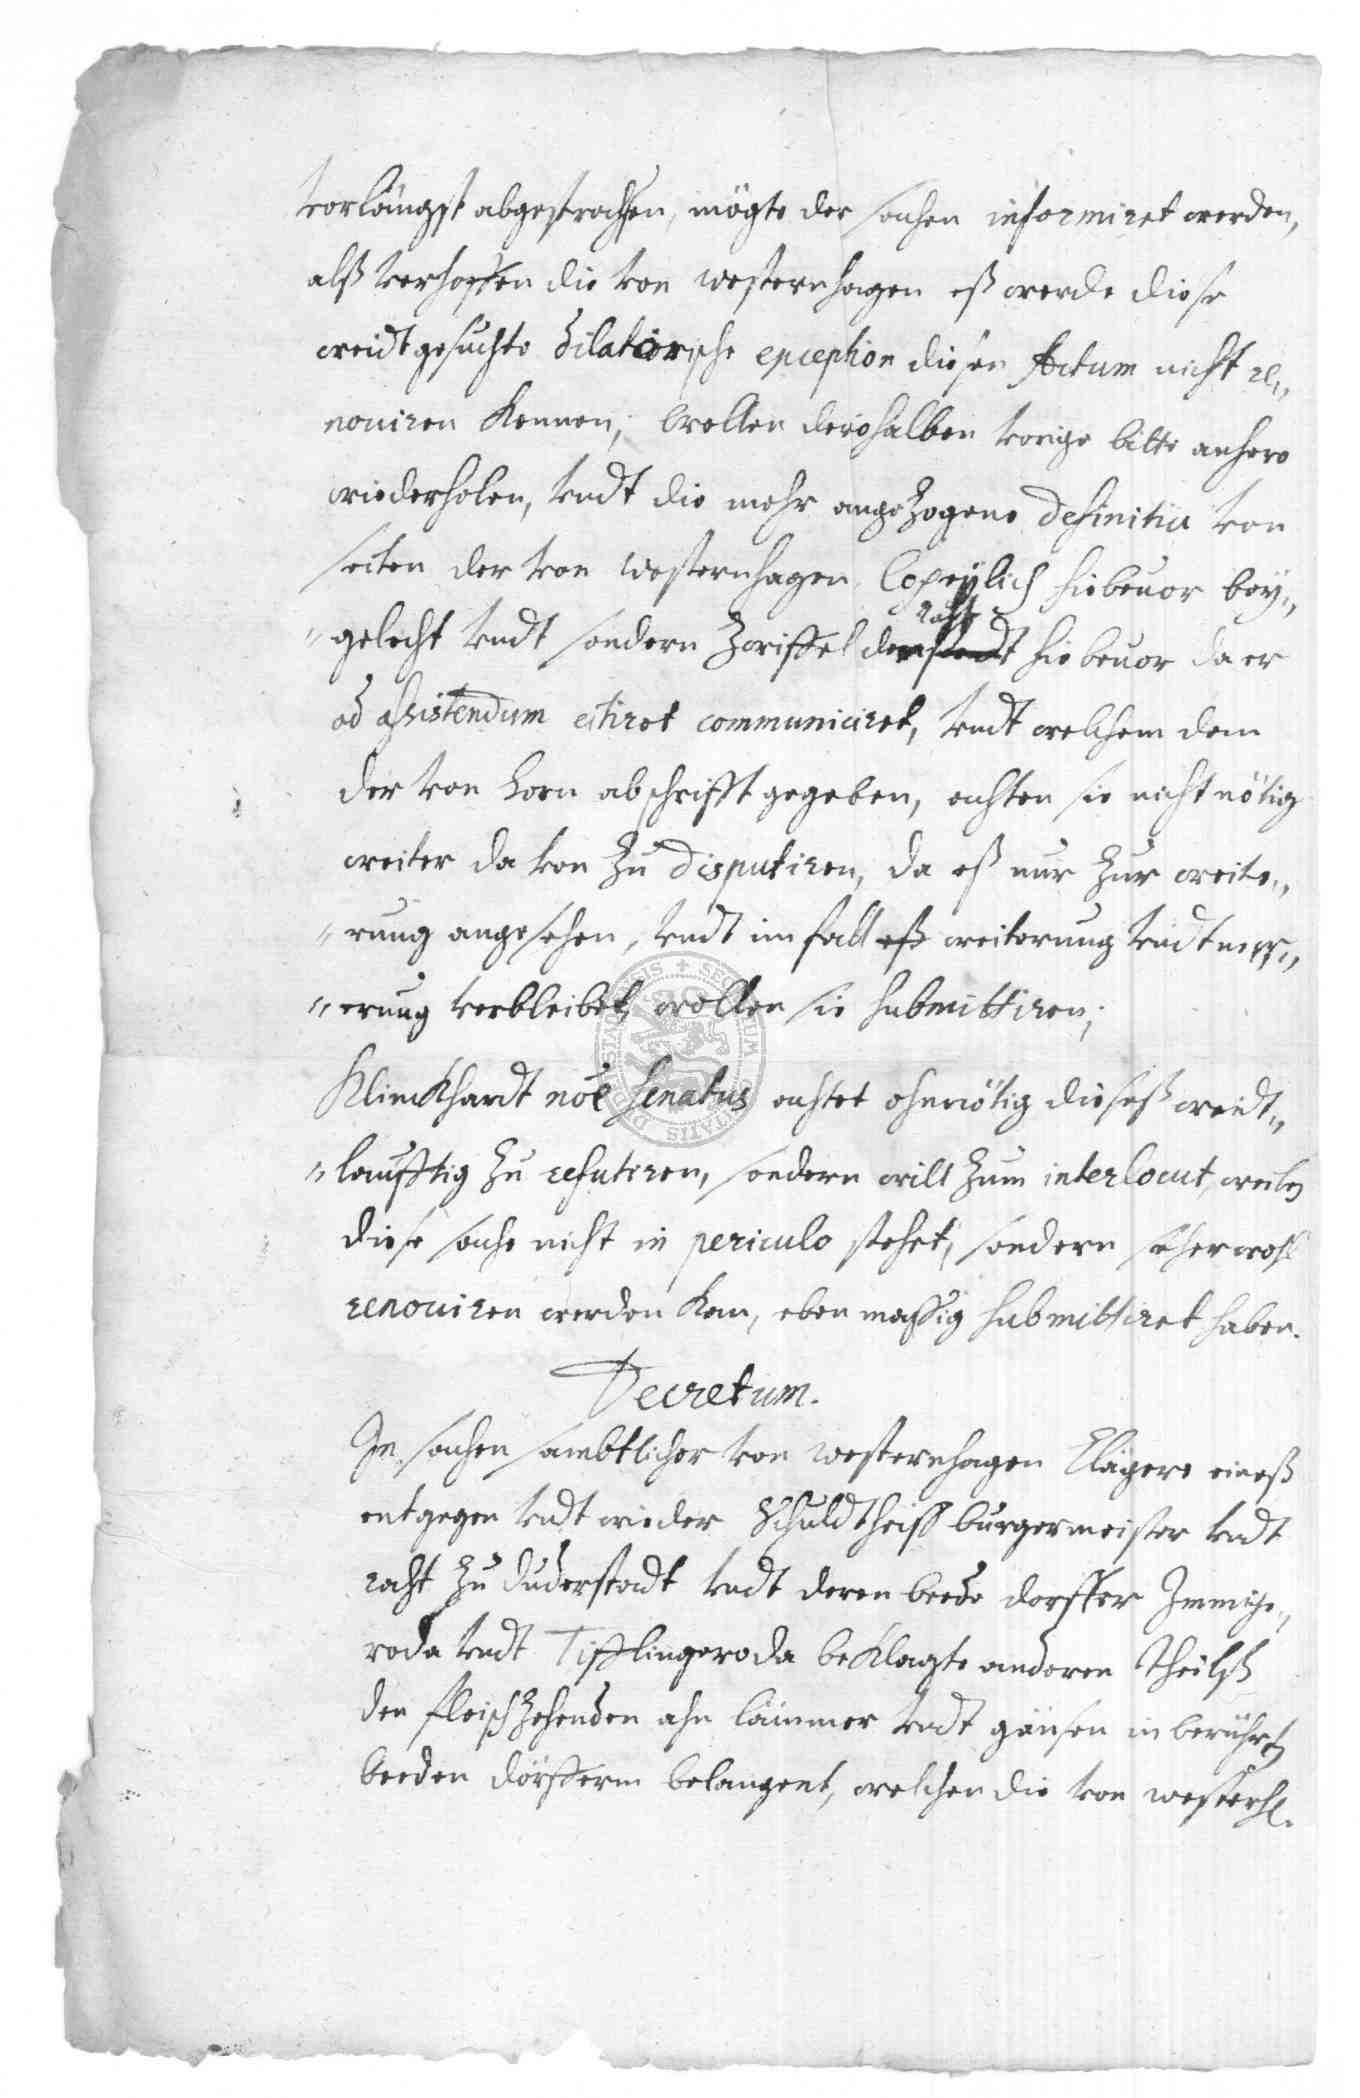 vorlängst abgesprochen, mögte der sachen informiret werden,
alß verhoffen die von westernhagen eß werde diese
weidtgesuchte dilatorische exception diesen actum nicht re„
noviren kennen, wollen deroshalben vorige bitte anhero
wiederholen, vndt die mehr angezogene definitiu von
seiten der von westernhagen Copeylich hiebeuor bey„
„gelecht vndt sondern Zweiffel dem raht hiebeuor da er
ad assistendum citiret communiciret, vndt welchem dem
der von abschrifft gegeben, achten sie nicht nötig
weiter da von zu disputiren, da eß nur zur weite„
„rung angesehen, vndt im fall eß weiterung vndt
„erung verbleibet, wollen sie submittiren;
Klinckhardt noe Senatus achtet ohnnötig dieseß weidt„
„leufftig zu refutiren, sondern will zum interlocut, weilen
diese sache nicht in periculo stehet, sondern sehr wohl
renoviren werden kan, eben maßig submittiret haben.
Decretum.
In sachen sambtlicher von westernhagen Clägere eineß
entgegen vndt wieder Schuldtheiß burgermeister vndt
raht zu duderstadt vndt deren beede dorffer Immige„
roda vndt Tifflingeroda beklagte anderen theilß
den fleischzehenden ahn lämmer vndt gänsen in berührten
beeden dörfferen belangent, welchen die von westerh.
SECRETUM DUDERSTADENSIS